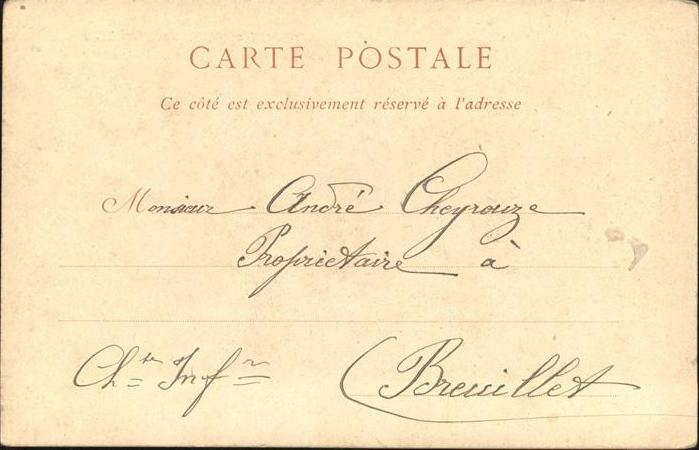 CARTE POSTALE
Ce côté est exclusivement réservé à l'adresse
Monsieur André Cheyrouze
Propriétaire à
Breuillet
Ch.te Inf.re